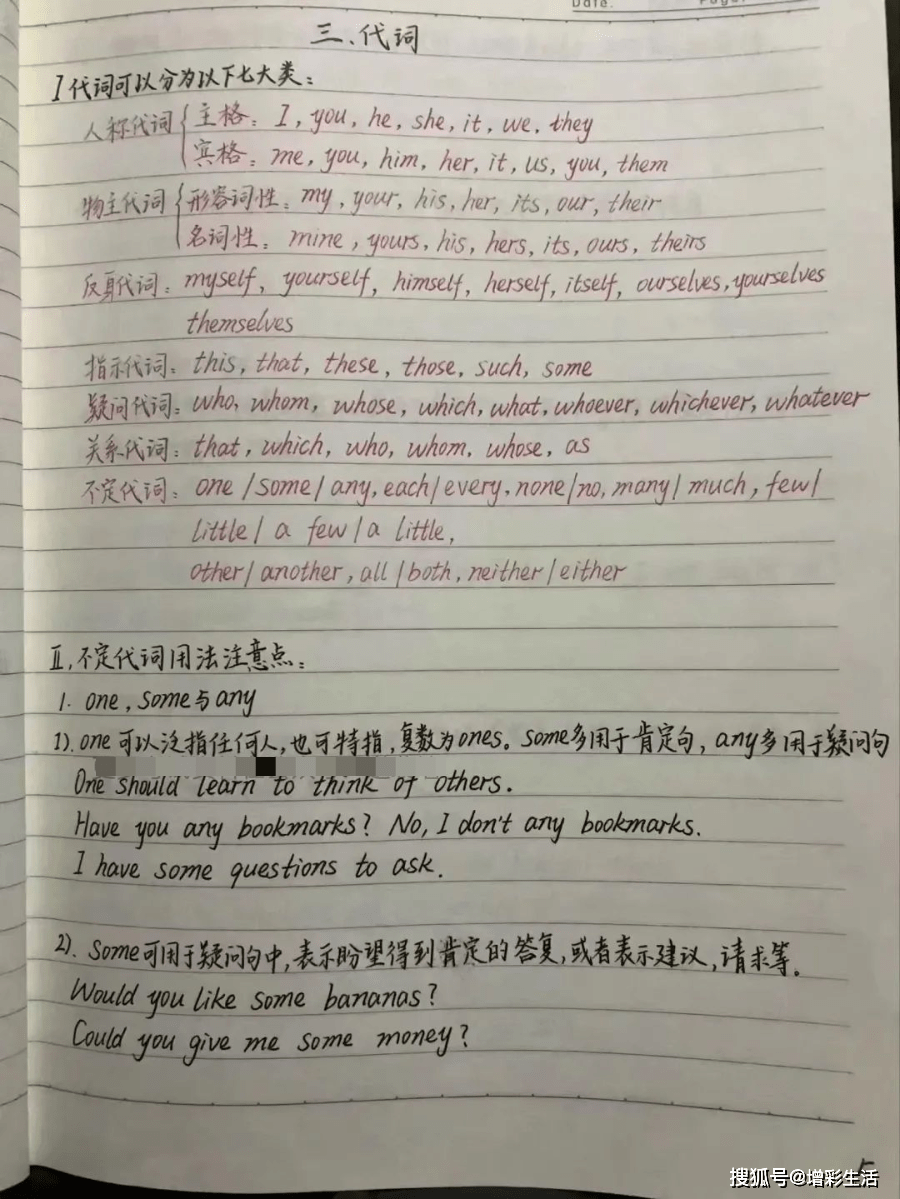 Date.
Page.
三、代词
I 代词可以分为以下七大类：
人称代词 主格：I, you, he, she, it, we, they
宾格：me, you, him, her, it, us, you, them
物主代词 形容词性：my, your, his, her, its, our, their
名词性：mine, yours, his, hers, its, ours, theirs
反身代词：myself, yourself, himself, herself, itself, ourselves, yourselves
themselves
指示代词：this, that, these, those, such, some
疑问代词：who, whom, whose, which, what, whoever, whichever, whatever
关系代词：that, which, who, whom, whose, as
不定代词：one / some / any, each / every, none / no, many / much, few /
little / a few / a little,
other / another, all / both, neither / either
II, 不定代词用法注意点：
1. one, some与any
1). one可以泛指任何人，也可特指，复数为ones。some多用于肯定句，any多用于疑问句
One should learn to think of others.
Have you any bookmarks? No, I don't any bookmarks.
I have some questions to ask.
2). some可用于疑问句中，表示盼望得到肯定的答复，或者表示建议，请求等。
Would you like some bananas?
Could you give me some money?
5
搜狐号@增彩生活